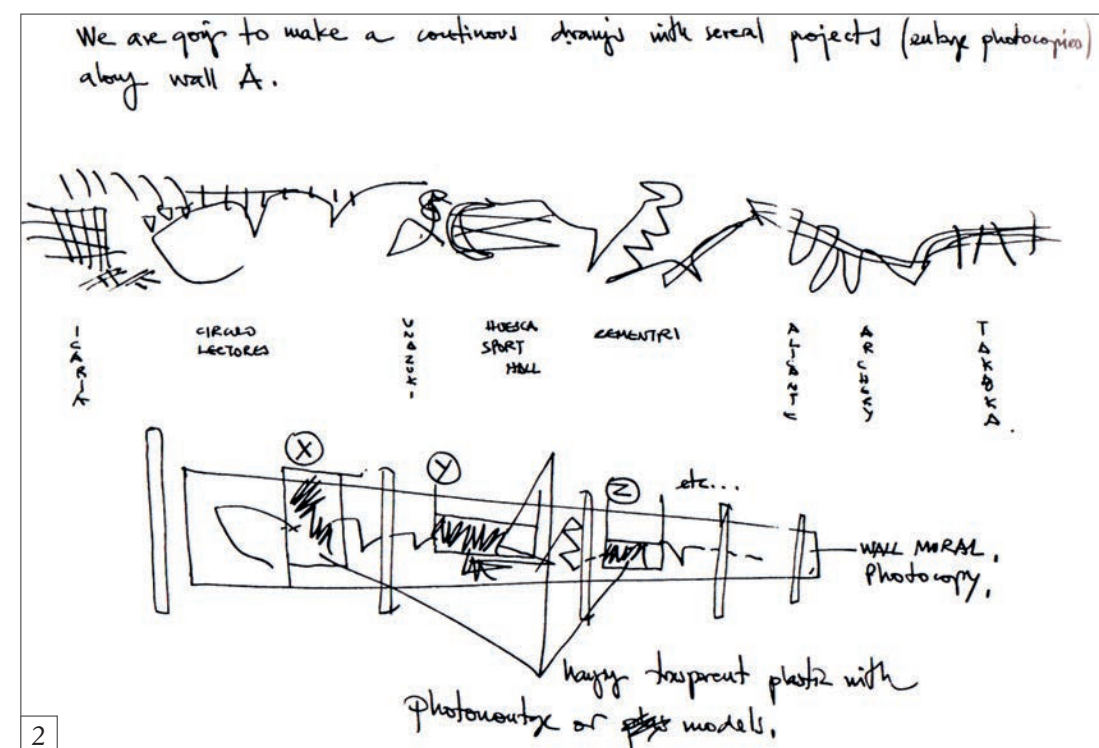 We are going to make a continous drawings with several projects (enlarge photocopies)
along wall A.
ICÀRIA
CIRCULO
LECTORES
UNAZUKI
HUESCA
SPORT
HALL
CEMENTRI
ALICANTE
ARCHERY
TAKAOKA.
X
Y
Z
etc...
WALL MORAL.
Photocopy.
transparent plastic with
Photomontage or models.
2